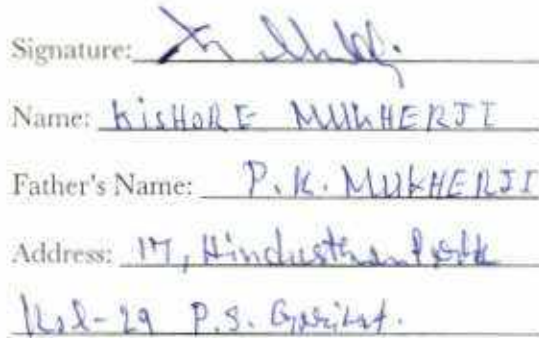 Signature:
Name: KISHORE MUKHERJI
Father's Name: P.K. MUKHERJI
Address: 17, Hindusthan Park
Kol-29 P.S. Gariahat.